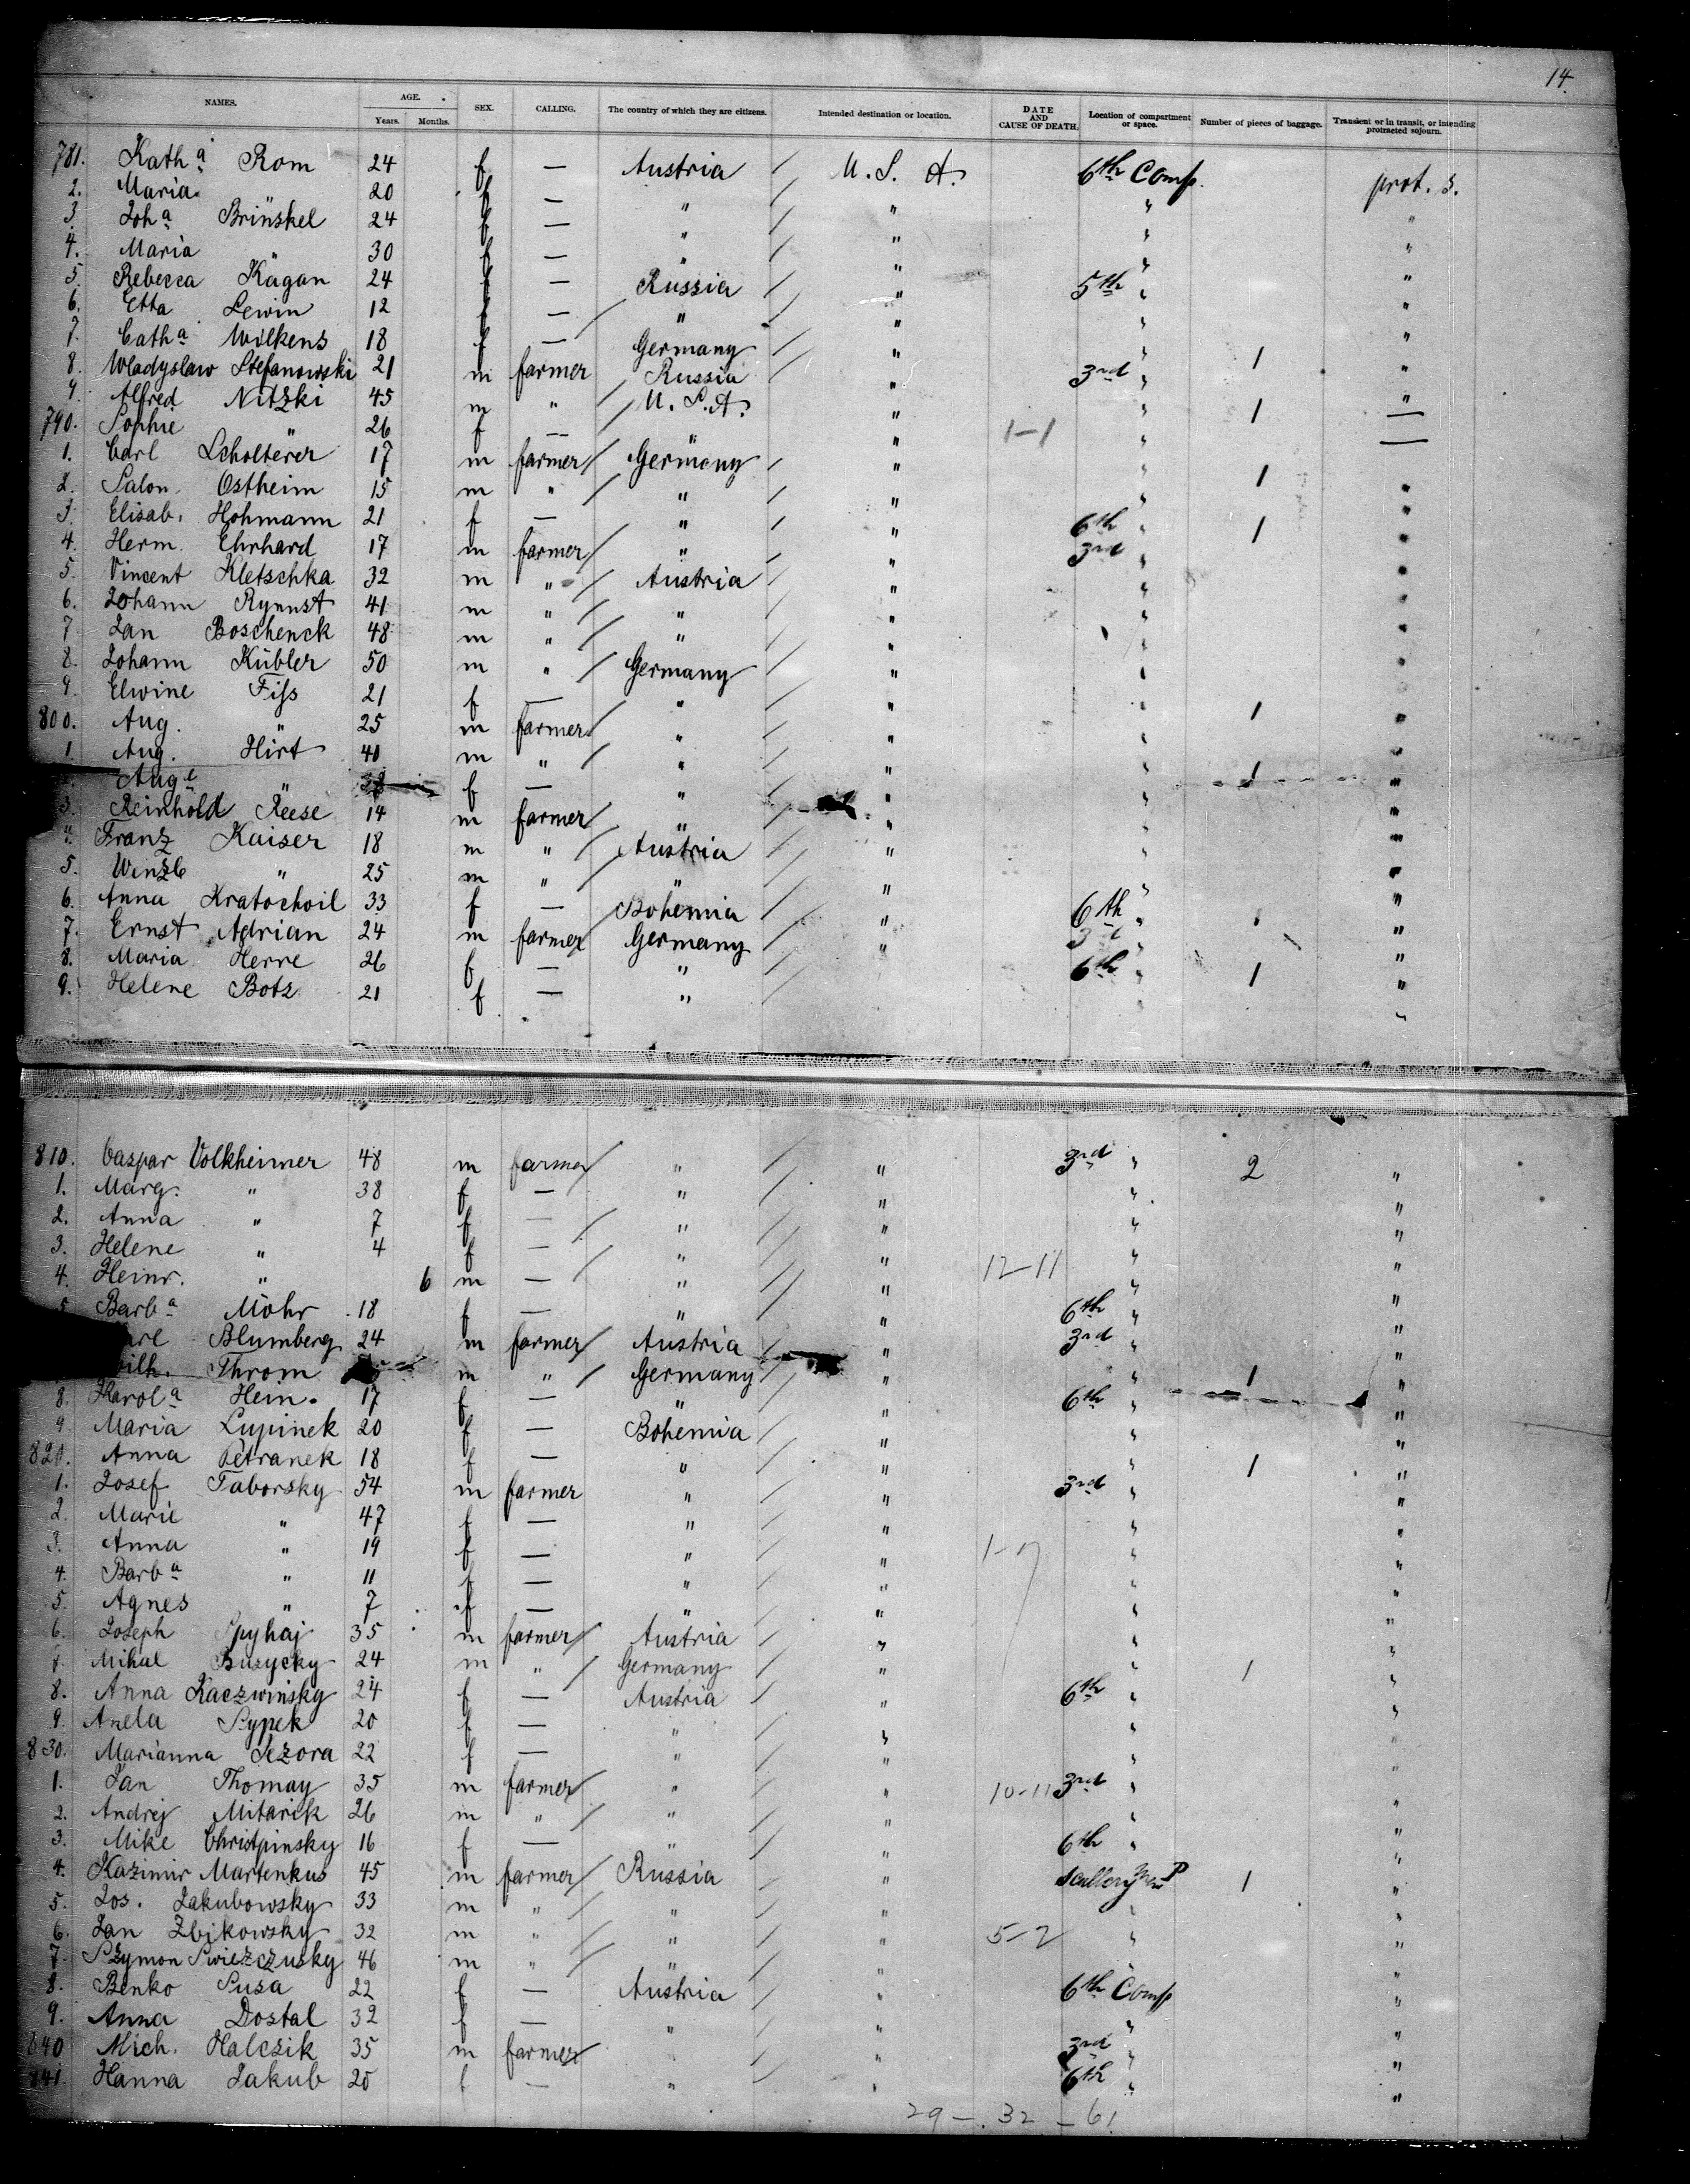 14.
NAMES. AGE. Years. Months. SEX. CALLING. The country of which they are citizens. Intended destination or location. DATE AND CAUSE OF DEATH. Location of compartment or space. Number of pieces of baggage. Transient or in transit, or intending protracted sojourn.
781. Kathᵃ Rom 24 f — Austria / U. S. A. 6th Comp. prot. s.
2. Maria " 20 f — " / " " "
3. Johᵃ Brinskel 24 f — " / " " "
4. Maria " 30 f — " / " " "
5. Rebecca Kagan 24 f — Russia / " 5th " "
6. Etta Lewin 12 f — / " / " " "
7. Cathᵃ Wilkens 18 f — Germany / " " 1 "
8. Wladyslaw Stefanowski 21 m farmer / Russia / " 3rd " "
9. Alfred Nitzki 45 m " / U. S. A. " " 1 —
790. Sophie " 26 f — " " 1-1 " —
1. Carl Scholterer 17 m farmer / Germany / " " 1 "
2. Salon. Ostheim 15 m " / " / " " "
3. Elisab. Hohmann 21 f — " / " 6th " 1 "
4. Herm. Ehrhard 17 m farmer / " / " 3rd " "
5. Vincent Kletschka 32 m " / Austria / " " "
6. Johann Rynnst 41 m " / " / " " "
7 Jan Boschenck 48 m " / " / " " "
8. Johann Kübler 50 m " / Germany / " " "
9. Elwine Fiss 21 f — " / " " 1 "
800. Aug. " 25 m farmer / " / " " "
1. Aug. Hirt 40 m " / " / " " 1 "
Augᵉ " f — " / " " "
3. Reinhold Reese 14 m farmer / " / " " "
4. Franz Kaiser 18 m " / Austria / " " "
5. Winzl " 25 m " / " / " " "
6. Anna Kratochvil 33 f — Bohemia / " 6th " "
7. Ernst Adrian 24 m farmer / Germany / " 3rd " "
8. Maria Herre 26 f — " / 6th " 1 "
9. Helene Botz 21 f — " / " "
810. Caspar Volkheimer 48 m farmer / " / " 3rd " 2 "
1. Marg. " 38 f — " / " " "
2. Anna " 7 f — / " / " " "
3. Helene " 4 f — / " / " 12-11 " "
4. Heinr. " 6 m — / " / " " "
5 Barbᵃ Mohr 18 f — " / " 6th " "
Blumberg 24 m farmer / Austria / " 3rd " "
Throm m " / Germany / " " 1 "
8. Karolᵃ Hein. 17 f — " / " 6th " "
9 Maria Lupinek 20 f — Bohemia / " " "
820. Anna Petranek 18 f — " / " " 1 "
1. Josef Taborsky 54 m farmer " / " 3rd " "
2. Marie " 47 f — " / " " "
3. Anna " 19 f — " / " 1-7 " "
4. Barbᵃ " 11 f — " / " " "
5. Agnes " 7 f — " / " " "
6. Joseph Spyhaj 35 m farmer / Austria / " " "
Mihal Busycky 24 m " / Germany / " " 1 "
8. Anna Kaczwinsky 24 f — Austria / " 6th " "
9. Anela Pypek 20 f — " / " " "
830. Marianna Sezora 22 f — " / " " "
1. Jan Thomay 35 m farmer / " / " 10-11 3rd " "
2. Andrej Mitarik 26 m " / " / " " "
3. Mike Christpinsky 16 f — " / " 6th " "
4. Kazimir Martenkus 45 m farmer / Russia / " 1 "
5. Jos. Jakubowsky 33 m " / " / " " "
6. Jan Zbikowsky 32 m " / " / " 5-2 " "
7. Szymon Swiezczusky 46 m " / " "
8. Benko Susa 22 f — Austria / " 6th Comp "
9. Anna Dostal 32 f — " / " " "
840 Mich. Halczik 35 m farmer / " / " 3rd " "
841. Hanna Jakub 20 f — " / " 6th " "
29 — 32 — 61